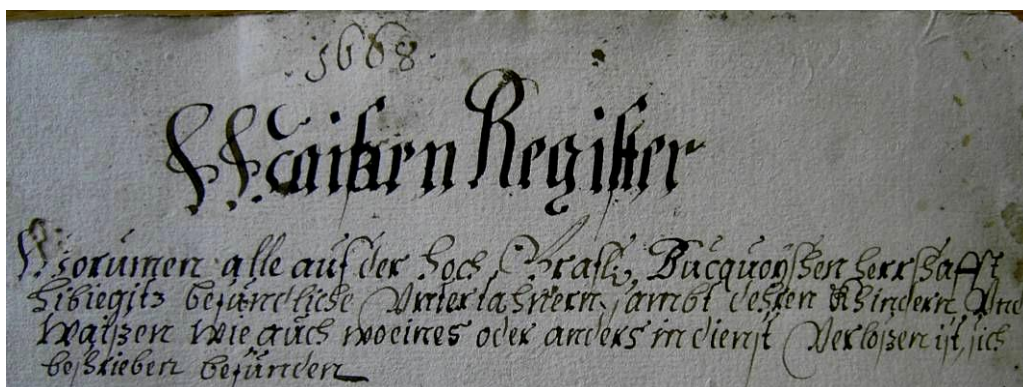 1668.
Waisen Register
Worinnen alle auf der Hoch Gräffl. Bucquoyschen herrschafft
Libiegitz befündliche Unterthannern, sambt dehren Khindern, Und
Waißen Wie auch wo eines oder anders in dienst Verloßen ist, sich
beschrieben befünden